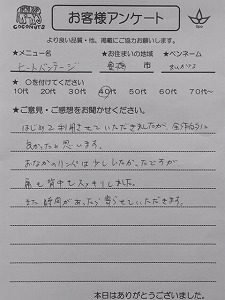 COCONUTS
お客様アンケート
より良い品質・他、掲載にご協力お願いします。
★メニュー名 ★お住まいの地域 ★ペンネーム
ヒートバンテージ 豊橋 市
★ ○を付けてください
10代 20代 30代 40代 50代 60代 70代~
★ご意見・ご感想をお聞かせください。
はじめて利用させていただきましたが、全体的に
良かったと思います。
おなかのリンパは少しいたかったですが
肩も背中もスッキリしました。
また時間があったら寄らせていただきます。
本日はありがとうございました。